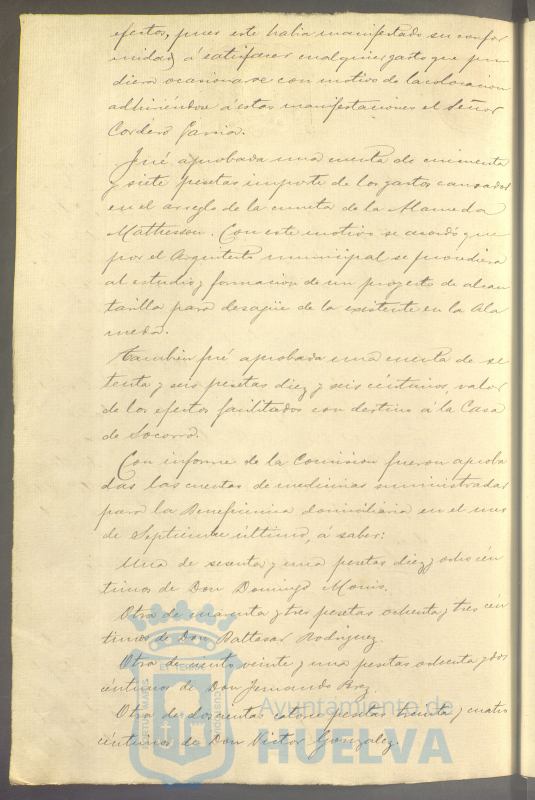 efectos, pues este habia manifestado su confor
midad á satisfacer cualquier gasto que pu
diera ocasionarse con motivo de la colocacion
adhiriéndose á estas manifestaciones el Señor
Cordero Garcia.
Fué aprobada una cuenta de cincuenta
y siete pesetas importe de los gastos causados
en el arreglo de la cuneta de la Alameda
Mathesson. Con este motivo se acordó que
por el Arquitecto municipal se procediera
al estudio y formacion de un proyecto de alcan
tarilla para desagüe de la existente en la Ala
meda.
Tambien fué aprobada una cuenta de se
tenta y seis pesetas diez y seis céntimos, valor
de los efectos facilitados con destino á la Casa
de Socorro.
Con informe de la Comision fueron aproba
das las cuentas de medicinas suministradas
para la Beneficencia domiciliaria en el mes
de Septiembre último, á saber:
Una de sesenta y una pesetas diez y ocho cén
timos de Don Domingo
Otra de cuarenta y tres pesetas ochenta y tres cén
timos de Don Baltasar Rodriguez.
Otra de ciento veinte y una pesetas ochenta y dos
céntimos de Don Fernando
Otra de doscientas catorce pesetas treinta y cuatro
céntimos de Don Victor Gonzalez.
Ayuntamiento de
HUELVA